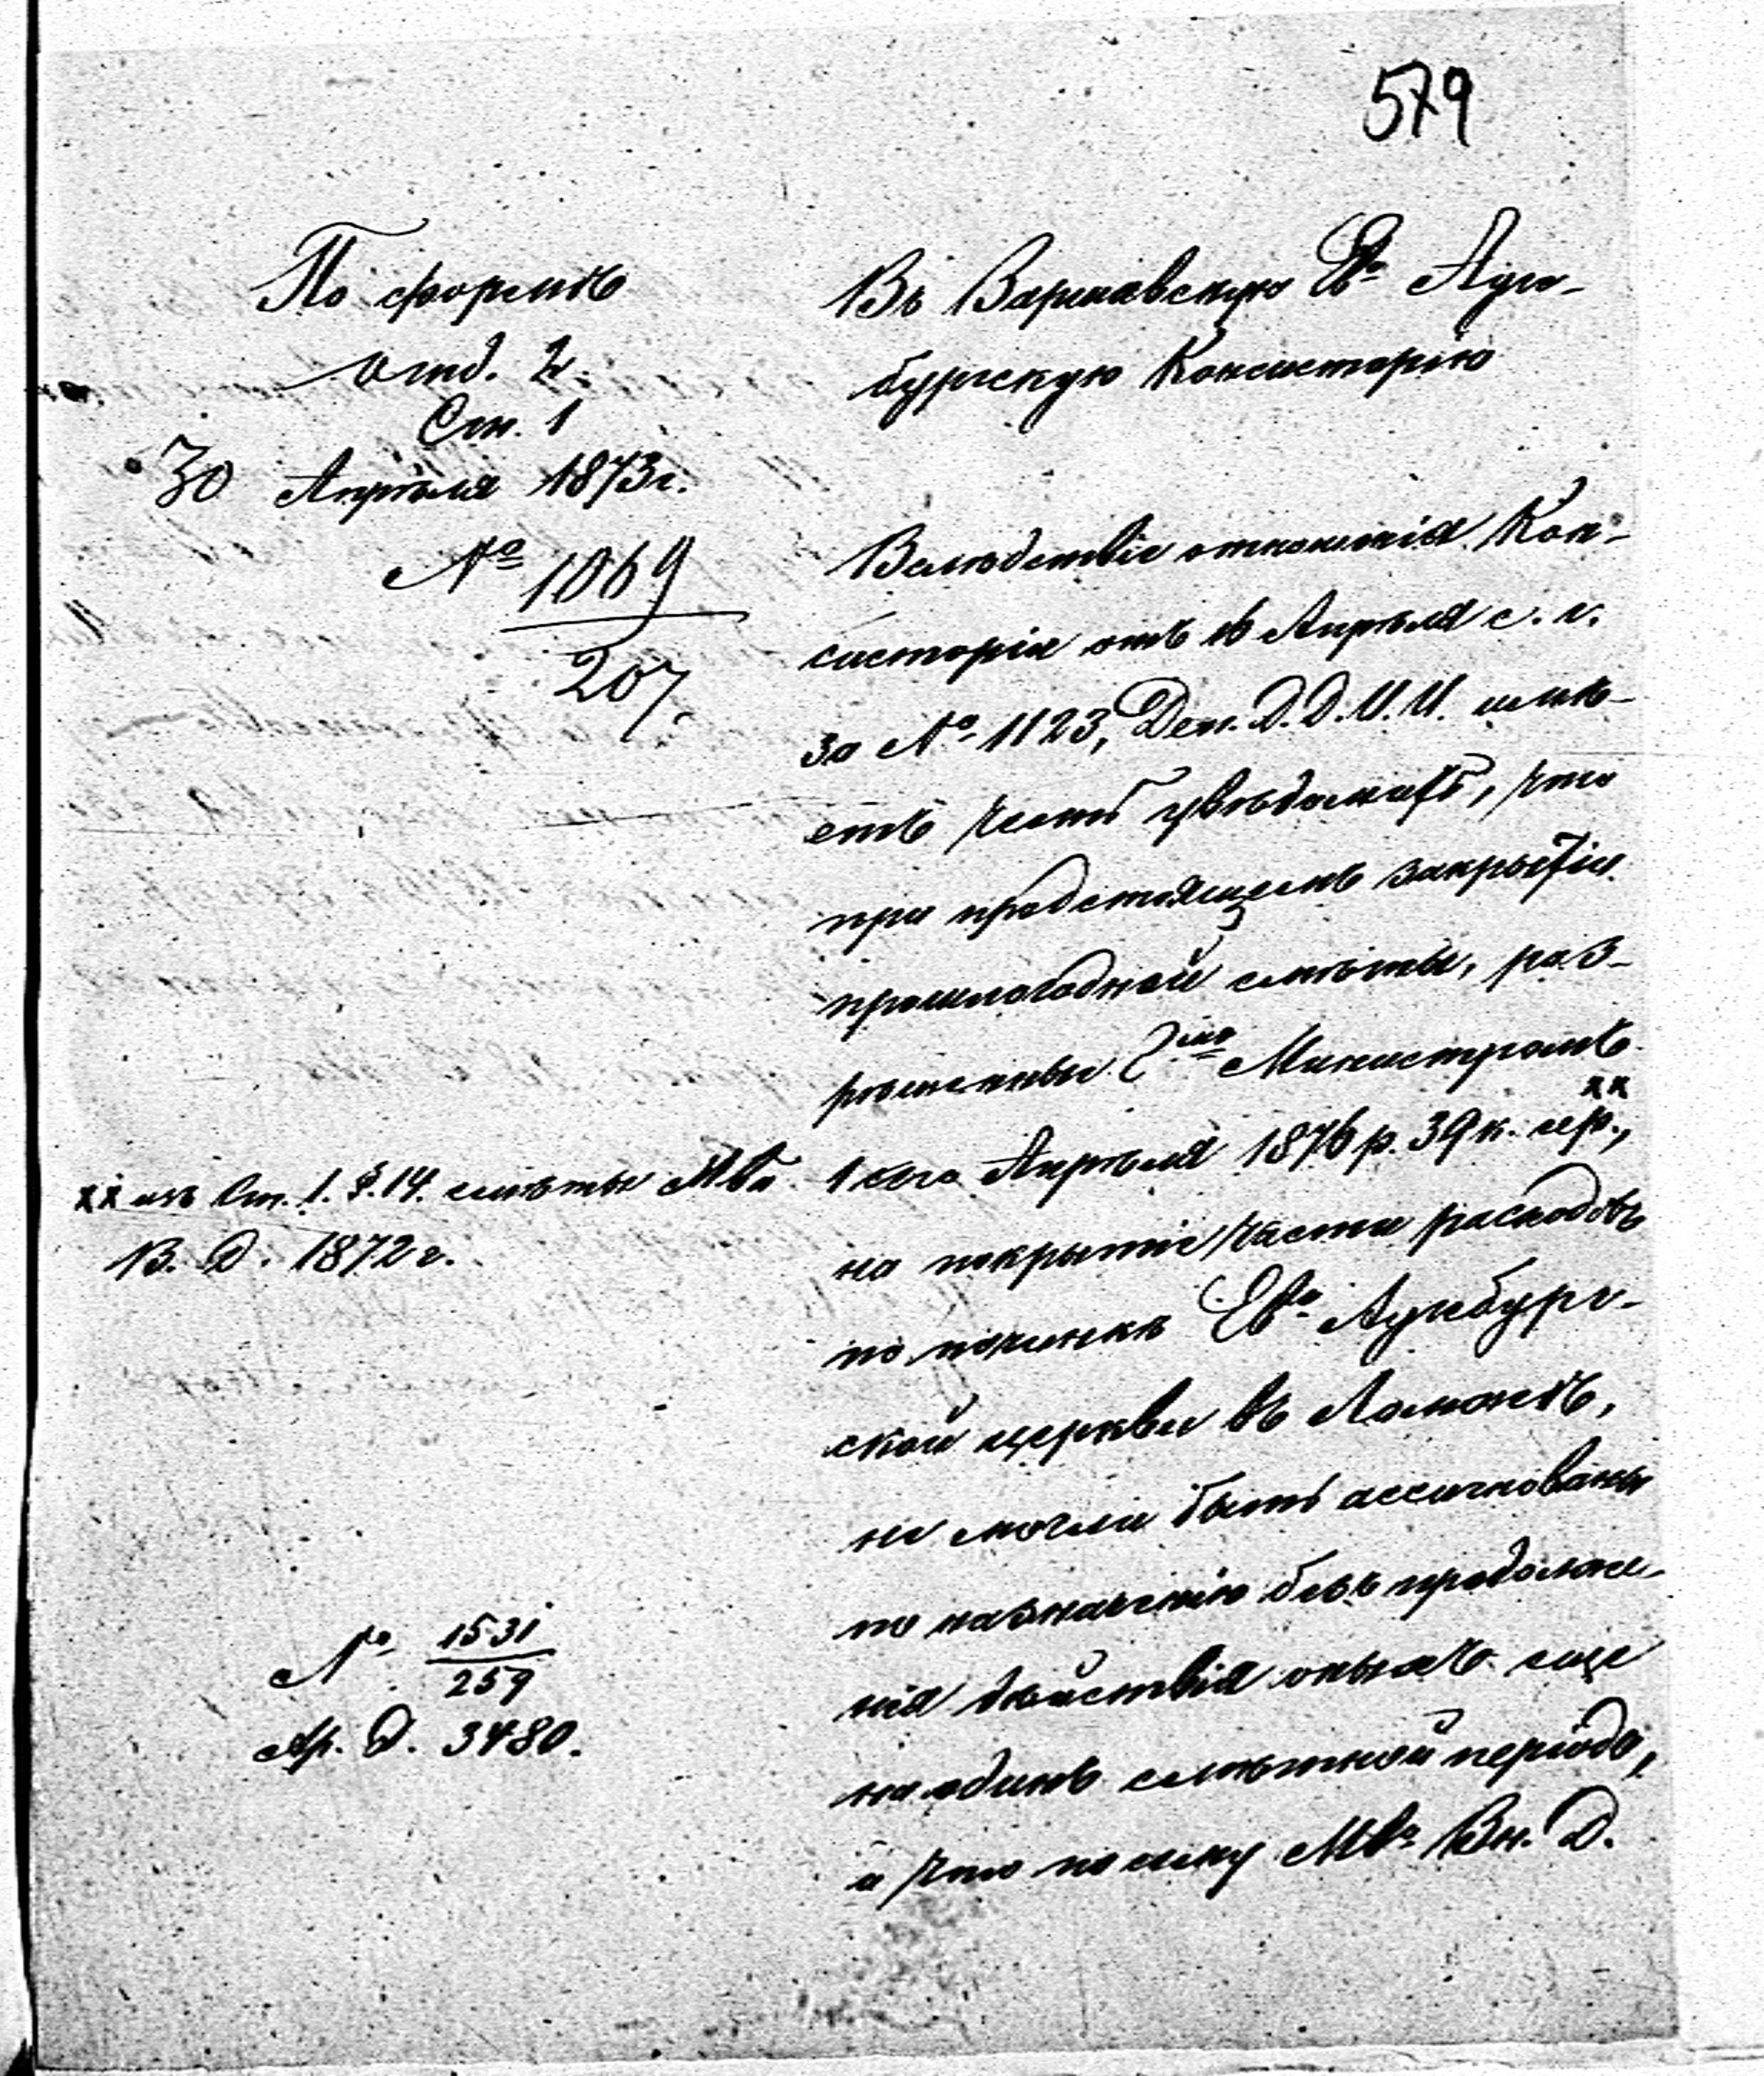 579
По формѣ
отд. 2.
Ст. 1
30 Апрѣля 1873 г.
№ 1069
207.
Въ Варшавскую Ев° Ауг-
бургскую Консисторію
Вслѣдствіе отношенія Кон-
систоріи отъ Апрѣля с. г.
за № 1123, Деп. Д. Д. И. И. имѣ-
етъ честь увѣдомить, что
при предстоящемъ закрытіи
прошлогодней смѣты, раз-
рѣшенные Министромъ
1 сего Апрѣля 1876 р. 39 к. сер.,
хх изъ Ст. 1. §. 14. смѣты Мва
В. Д. 1872 г.
на покрытіе части расходовъ
по починкѣ Ев° Аугсбург-
ской церкви въ Ломжѣ,
не могли быть ассигнованы
по назначенію безъ продолже-
нія дѣйствія оныхъ еще
на одинъ смѣтной періодъ,
и что по сему Мв° Вн. Д.
№ 1531
259
Ар. Д. 3480.